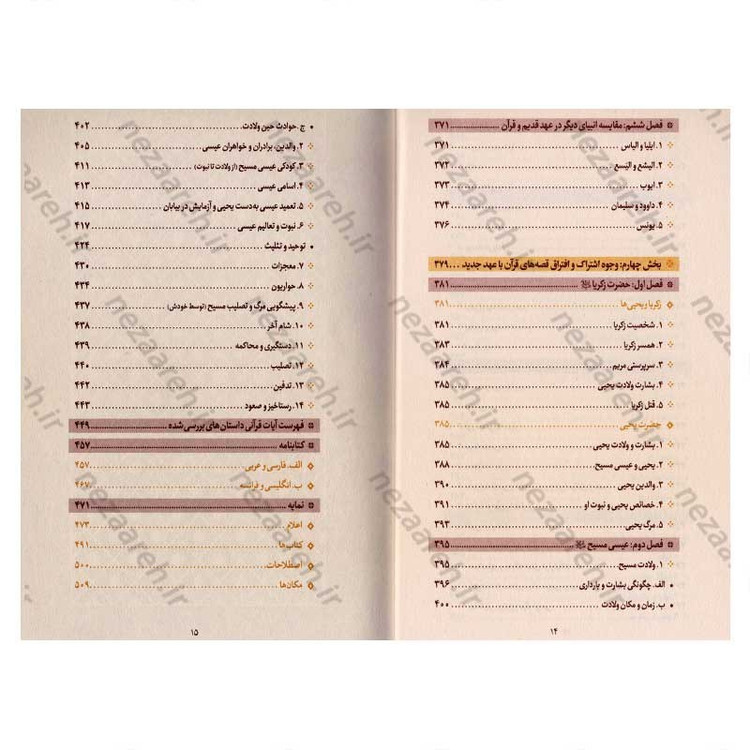 فصل ششم: مقایسه انبیای دیگر در عهد قدیم و قرآن ۳۷۱
۱. ایلیا و الیاس ۳۷۱
۲. الیشع و الیَسع ۳۷۲
۳. ایوب ۳۷۳
۴. داوود و سلیمان ۳۷۴
۵. یونس ۳۷۶
بخش چهارم: وجوه اشتراک و افتراق قصه‌های قرآن با عهد جدید ۳۷۹
فصل اول: حضرت زکریا ۳۸۱
زکریا و یحیی‌ها ۳۸۱
۱. شخصیت زکریا ۳۸۱
۲. همسر زکریا ۳۸۳
۳. سرپرستی مریم ۳۸۴
۴. بشارت ولادت یحیی ۳۸۵
۵. قتل زکریا ۳۸۵
حضرت یحیی ۳۸۵
۱. بشارت و ولادت یحیی ۳۸۵
۲. یحیی و عیسی مسیح ۳۸۸
۳. والدین یحیی ۳۹۰
۴. خصائص یحیی و نبوت او ۳۹۱
۵. مرگ یحیی ۳۹۳
فصل دوم: عیسی مسیح ۳۹۵
۱. ولادت مسیح ۳۹۵
الف. چگونگی بشارت و بارداری ۳۹۶
ب. زمان و مکان ولادت ۴۰۰
۱۴
ج. حوادث حین ولادت ۴۰۲
۲. والدین، برادران و خواهران عیسی ۴۰۵
۳. کودکی عیسی مسیح (از ولادت تا نبوت) ۴۱۱
۴. اسامی عیسی ۴۱۳
۵. تعمید عیسی به‌دست یحیی و آزمایش در بیابان ۴۱۵
۶. نبوت و تعالیم عیسی ۴۱۷
توحید و تثلیث ۴۲۴
۷. معجزات ۴۳۰
۸. حواریون ۴۳۴
۹. پیشگویی مرگ و تصلیب مسیح (توسط خودش) ۴۳۷
۱۰. شام آخر ۴۳۸
۱۱. دستگیری و محاکمه ۴۳۹
۱۲. تصلیب ۴۴۰
۱۳. تدفین ۴۴۲
۱۴. رستاخیز و صعود ۴۴۳
فهرست آیات قرآنی داستان‌های بررسی‌شده ۴۴۹
کتابنامه ۴۵۷
الف. فارسی و عربی ۴۵۷
ب. انگلیسی و فرانسه ۴۶۷
نمایه ۴۷۱
اعلام ۴۷۳
کتاب‌ها ۴۹۱
اصطلاحات ۵۰۰
مکان‌ها ۵۰۹
۱۵
nezaareh.ir